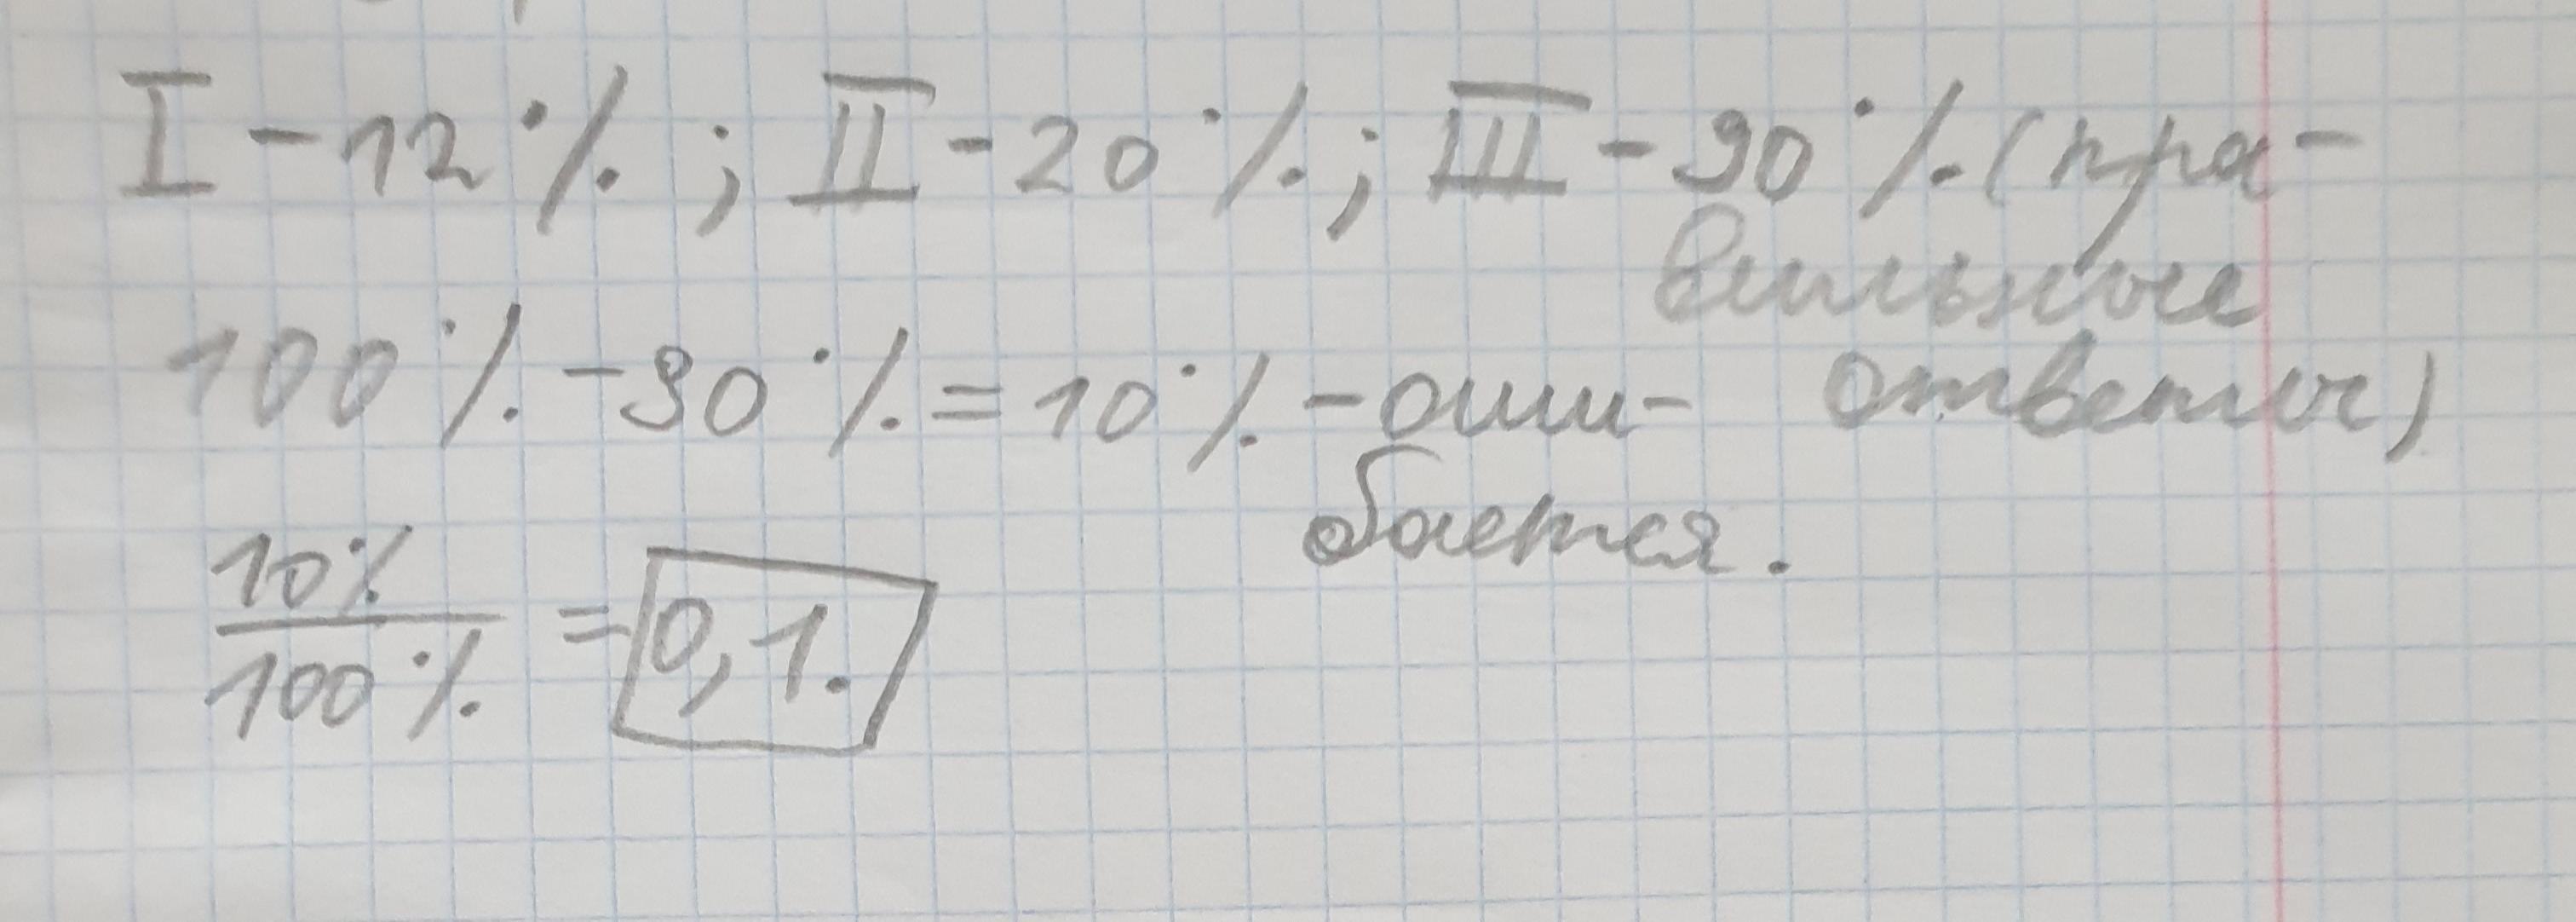 I - 12% ; II - 20% ; III - 90% (пра-
вильные
ответы)
100% - 90% = 10% - оши-
бается.
10%
100%
= 0,1.